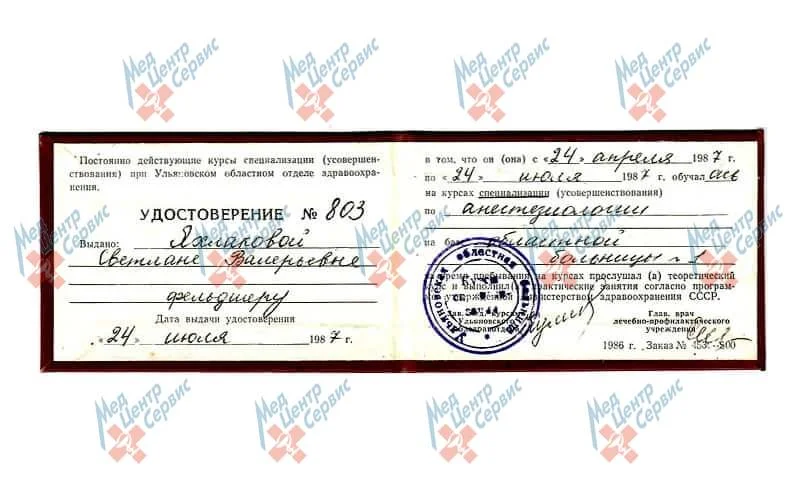 Мед Центр Сервис
Мед Центр Сервис
Мед Центр Сервис
Мед Центр Сервис
Постоянно действующие курсы специализации (усовершен-
ствования) при Ульяновском областном отделе здравоохра-
нения.
УДОСТОВЕРЕНИЕ № 803
Выдано: Яхлаковой
Светлане Валерьевне
фельдшеру
Дата выдачи удостоверения
«24» июля 1987 г.
в том, что он (она) с «24» апреля 1987 г.
по «24» июля 1987 г. обучал ась
на курсах специализации (усовершенствования)
по анестезиологии
на базе областной
больницы г. 1
время пребывания на курсах прослушал (а) теоретический
и выполнил практические занятия согласно програм-
утвержденной Министерством здравоохранения СССР.
Ульяновского
Глав. врач
лечебно-профилактического
учреждения
1986 г. Заказ № 453--800
Ульяновская областная больница
Мед Центр Сервис
Мед Центр Сервис
Мед Центр Сервис
Мед Центр Сервис